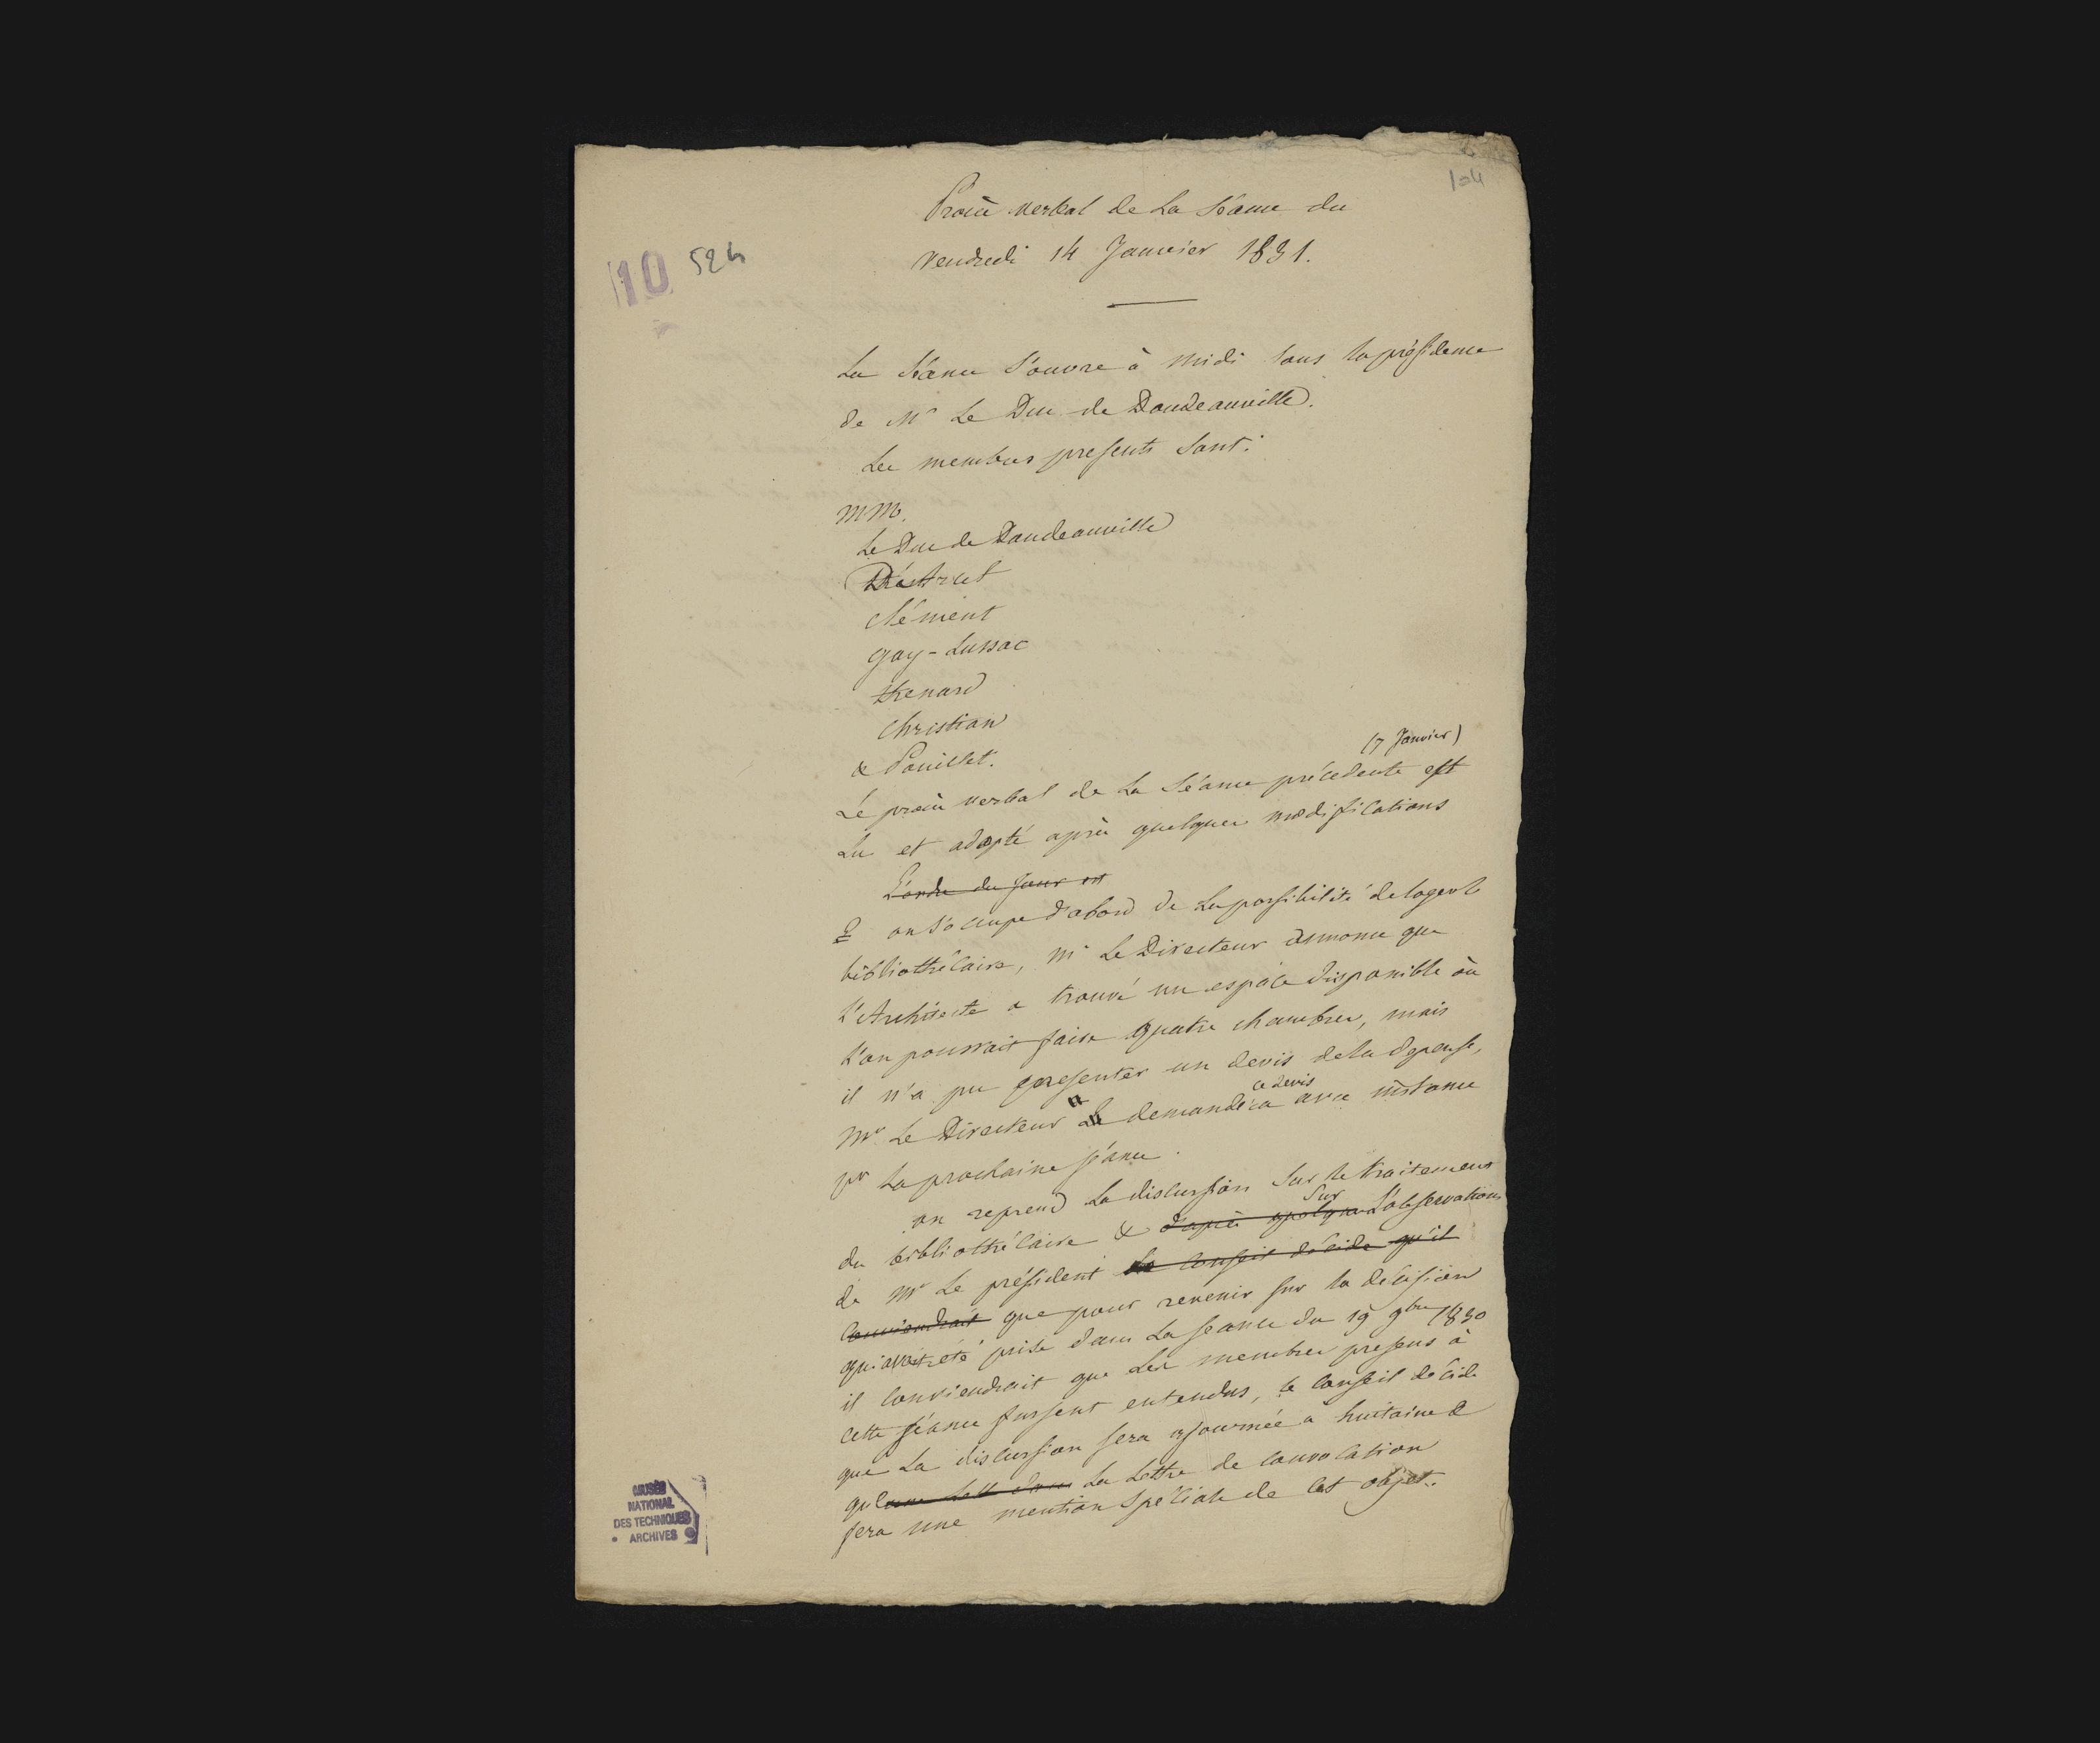 104
Procès verbal de La Séance du
Vendredi 14 Janvier 1831.
110 524
La Séance S'ouvre à Midi Sous la présidence
de Mr Le Duc de Doudeauville.
Les membres presents Sont:
MM.
Le Duc de Doudeauville
D'Arcet
Clément
Gay-Lussac
thenard
Christian
& Pouillet.
(7 Janvier)
Le procès verbal de La Séance précedente est
Lu et adopté après quelques modifications
L'ordre du Jour est
on S'occupe d'abord de La possibilité de loger le
bibliothécaire, Mr Le Directeur annonce que
L'Architecte a trouvé un espace disponible où
L'on pourrait faire quatre chambres, mais
il n'a pu presenter un devis de la depense,
ce devis
Mr Le Directeur demandera avec instance
pr La prochaine séance.
on reprend La discussion Sur le traitement
Sur
du bibliothécaire & d'après quelques L'observations
de Mr Le président Le Conseil décide qu'il
Conviendrait que pour revenir sur la decision
qui avait été prise dans La seance du 19 9bre 1830
il conviendrait que Les membres presens à
cette séance fussent entendus, le Conseil décide
que La discussion sera ajournée a huitaine &
que La Lettre de convocation
fera une mention Spéciale de cet objet.
MUSÉE
NATIONAL
DES TECHNIQUES
ARCHIVES